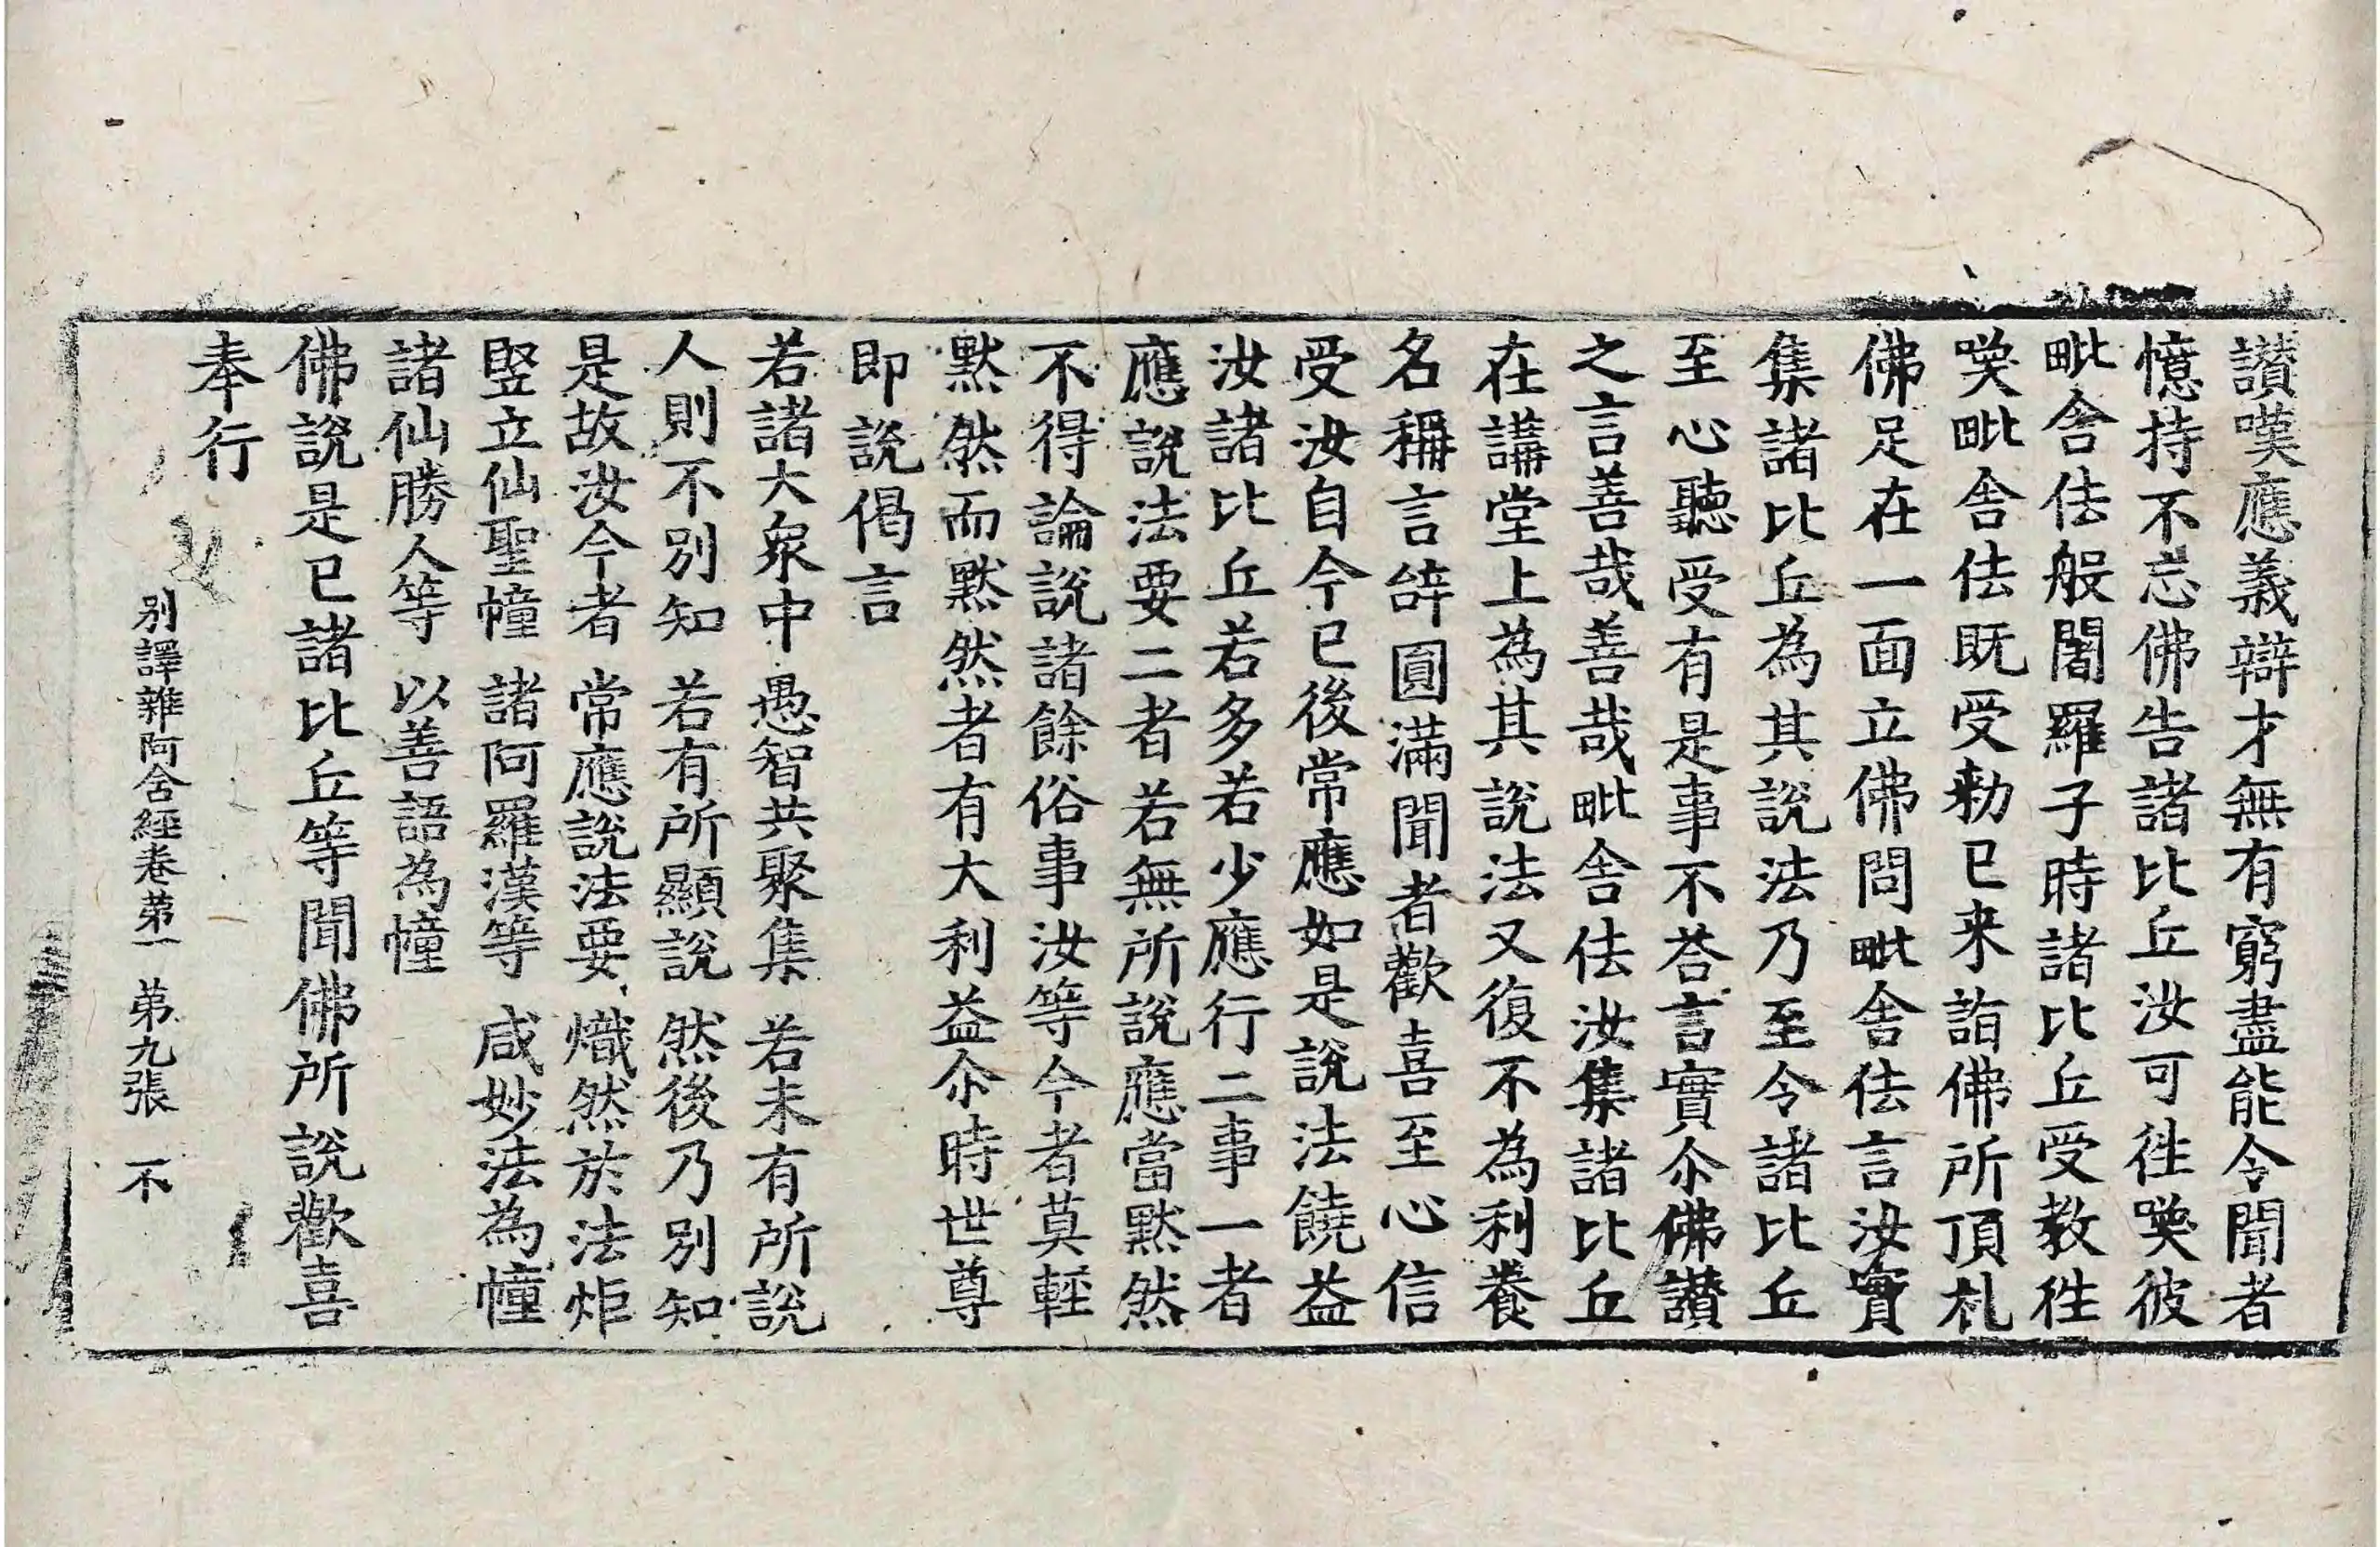 讃嘆應義辯才無有窮盡能令聞者
憶持不忘佛告諸比丘汝可徃喚彼
毗舍佉般闍羅子時諸比丘受教徃
喚毗舍佉既受勑已来詣佛所頂札
佛足在一面立佛問毗舍佉言汝實
集諸比丘為其說法乃至令諸比丘
至心聽受有是事不荅言實尒佛讃
之言善哉善哉毗舍佉汝集諸比丘
在講堂上為其說法又復不為利養
名稱言辝圓滿聞者歡喜至心信
受汝自今已後常應如是說法饒益
汝諸比丘若多若少應行二事一者
應說法要二者若無所說應當默然
不得論說諸餘俗事汝等今者莫輕
默然而默然者有大利益尒時世尊
即說偈言
若諸大衆中 愚智共聚集 若未有所說
人則不別知 若有所顯說 然後乃別知
是故汝今者 常應說法要 熾然於法炬
竪立仙聖幢 諸阿羅漢等 咸妙法為幢
諸仙勝人等 以善語為幢
佛說是已諸比丘等聞佛所說歡喜
奉行
别譯雜阿含經卷苐一 苐九張 不